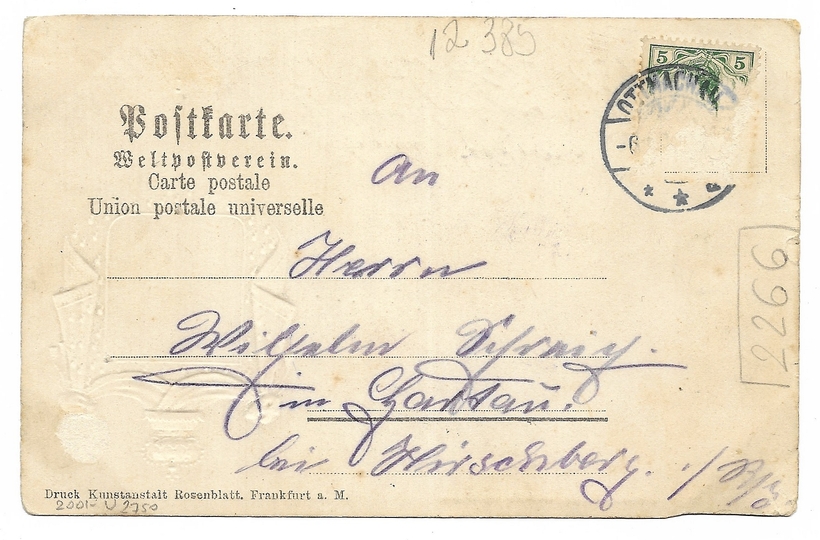 12 385
5 5
OTTMACHAU
Postkarte.
Weltpostverein.
Carte postale
Union postale universelle
An
Herrn
Wilhelm
in
bei Hirschberg.
2266
Druck Kunstanstalt Rosenblatt. Frankfurt a. M.
2001-U 2750